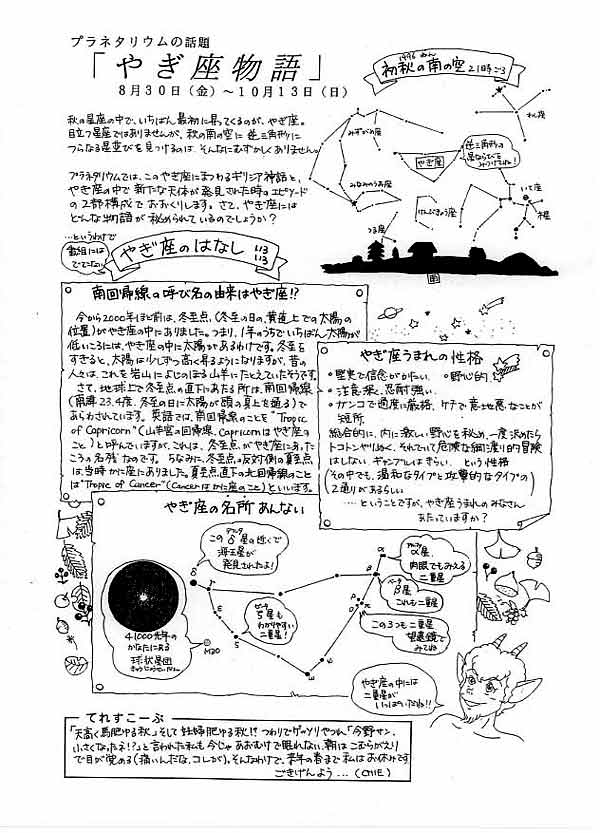 プラネタリウムの話題
「やぎ座物語」
8月30日(金)~10月13日(日)
1996
初秋の南の空 21時ごろ
秋の星座の中で、いちばん最初に昇ってくるのが、やぎ座。
目立つ星座ではありませんが、秋の南の空に逆三角形に
つらなる星並びを見つけるのは、そんなにむずかしくありません。
プラネタリウムでは、このやぎ座にまつわるギリシア神話と、
やぎ座の中で新たな天体が発見された時のエピソード
の2部構成でおおくりします。さて、やぎ座には
どんな物語が秘められているのでしょうか?
みずがめ座
やぎ座
逆三角形の
星ならびを
みつけてね!
わし座
いて座
みなみのうお座
けんびきょう座
つる座
南
…というわけで
番組には
でてこない
やぎ座のはなし
南回帰線の呼び名の由来はやぎ座!?
今から2000年ほど前は、冬至点(冬至の日の、黄道上での太陽の
位置)がやぎ座の中にありました。つまり、1年のうちでいちばん太陽が
低いころには、やぎ座の中に太陽があるわけです。冬至を
すぎると、太陽は少しずつ高く昇るようになりますが、昔の
人々は、これを岩山によじのぼる山羊にたとえていたそうです。
さて、地球上で冬至点の直下にあたる所は、南回帰線
(南緯23.4度、冬至の日に太陽が頭の真上を通る)で
あらわされています。英語では、南回帰線のことを"Tropic
of Capricorn"(山羊宮の回帰線、Capricornはやぎ座の
こと)と呼んでいますが、これは、冬至点がやぎ座にあった
ころの名残なのです。ちなみに、冬至点の反対側の夏至点
は、当時かに座にありました。夏至点直下の北回帰線のこと
は"Tropic of Cancer"(Cancerはかに座のこと)といいます。
やぎ座うまれの性格
・堅実で信念がかたい ・野心的
・注意深く、忍耐強い
・ガンコで過度に厳格、ケチで意地悪なことが
短所
総合的に、内に激しい野心を秘め、一度決めたら
トコトンやりぬく、それでいて危険な綱渡り的冒険
はしない、ギャンブルはきらい、という性格
(その中でも、温和なタイプと攻撃的なタイプの)
2通りがあるらしい
……ということですが、やぎ座うまれのみなさん
あたっていますか?
やぎ座の名所あんない
デルタ
このδ星の近くで
海王星が
発見されたよ!
アルファ
α星、
肉眼でもみえる
二重星
ベータ
β星
これも二重星
ゼータ
ζ星も
わかりやすい
二重星!
この3つも二重星
望遠鏡で
みてね
41000光年の
かなたにある
球状星団
きゅうじょうせいだん
M30
δ
γ
ε
ζ
α
β
ρ
ο
π
ψ
ω
やぎ座の中には
二重星が
いっぱいだね!!
てれすこーぷ
「天高く馬肥ゆる秋」そして妊婦肥ゆる秋!? つわりでゲッソリやつれ「今野サン、
小さくなったネ!?」と言われた私も今じゃあおむけで眠れない、朝はこむらがえり
で目が覚める(痛いんだな、コレが)。そんなわけで、来年の春まで私はお休みです
ごきげんよう…(CHIE)